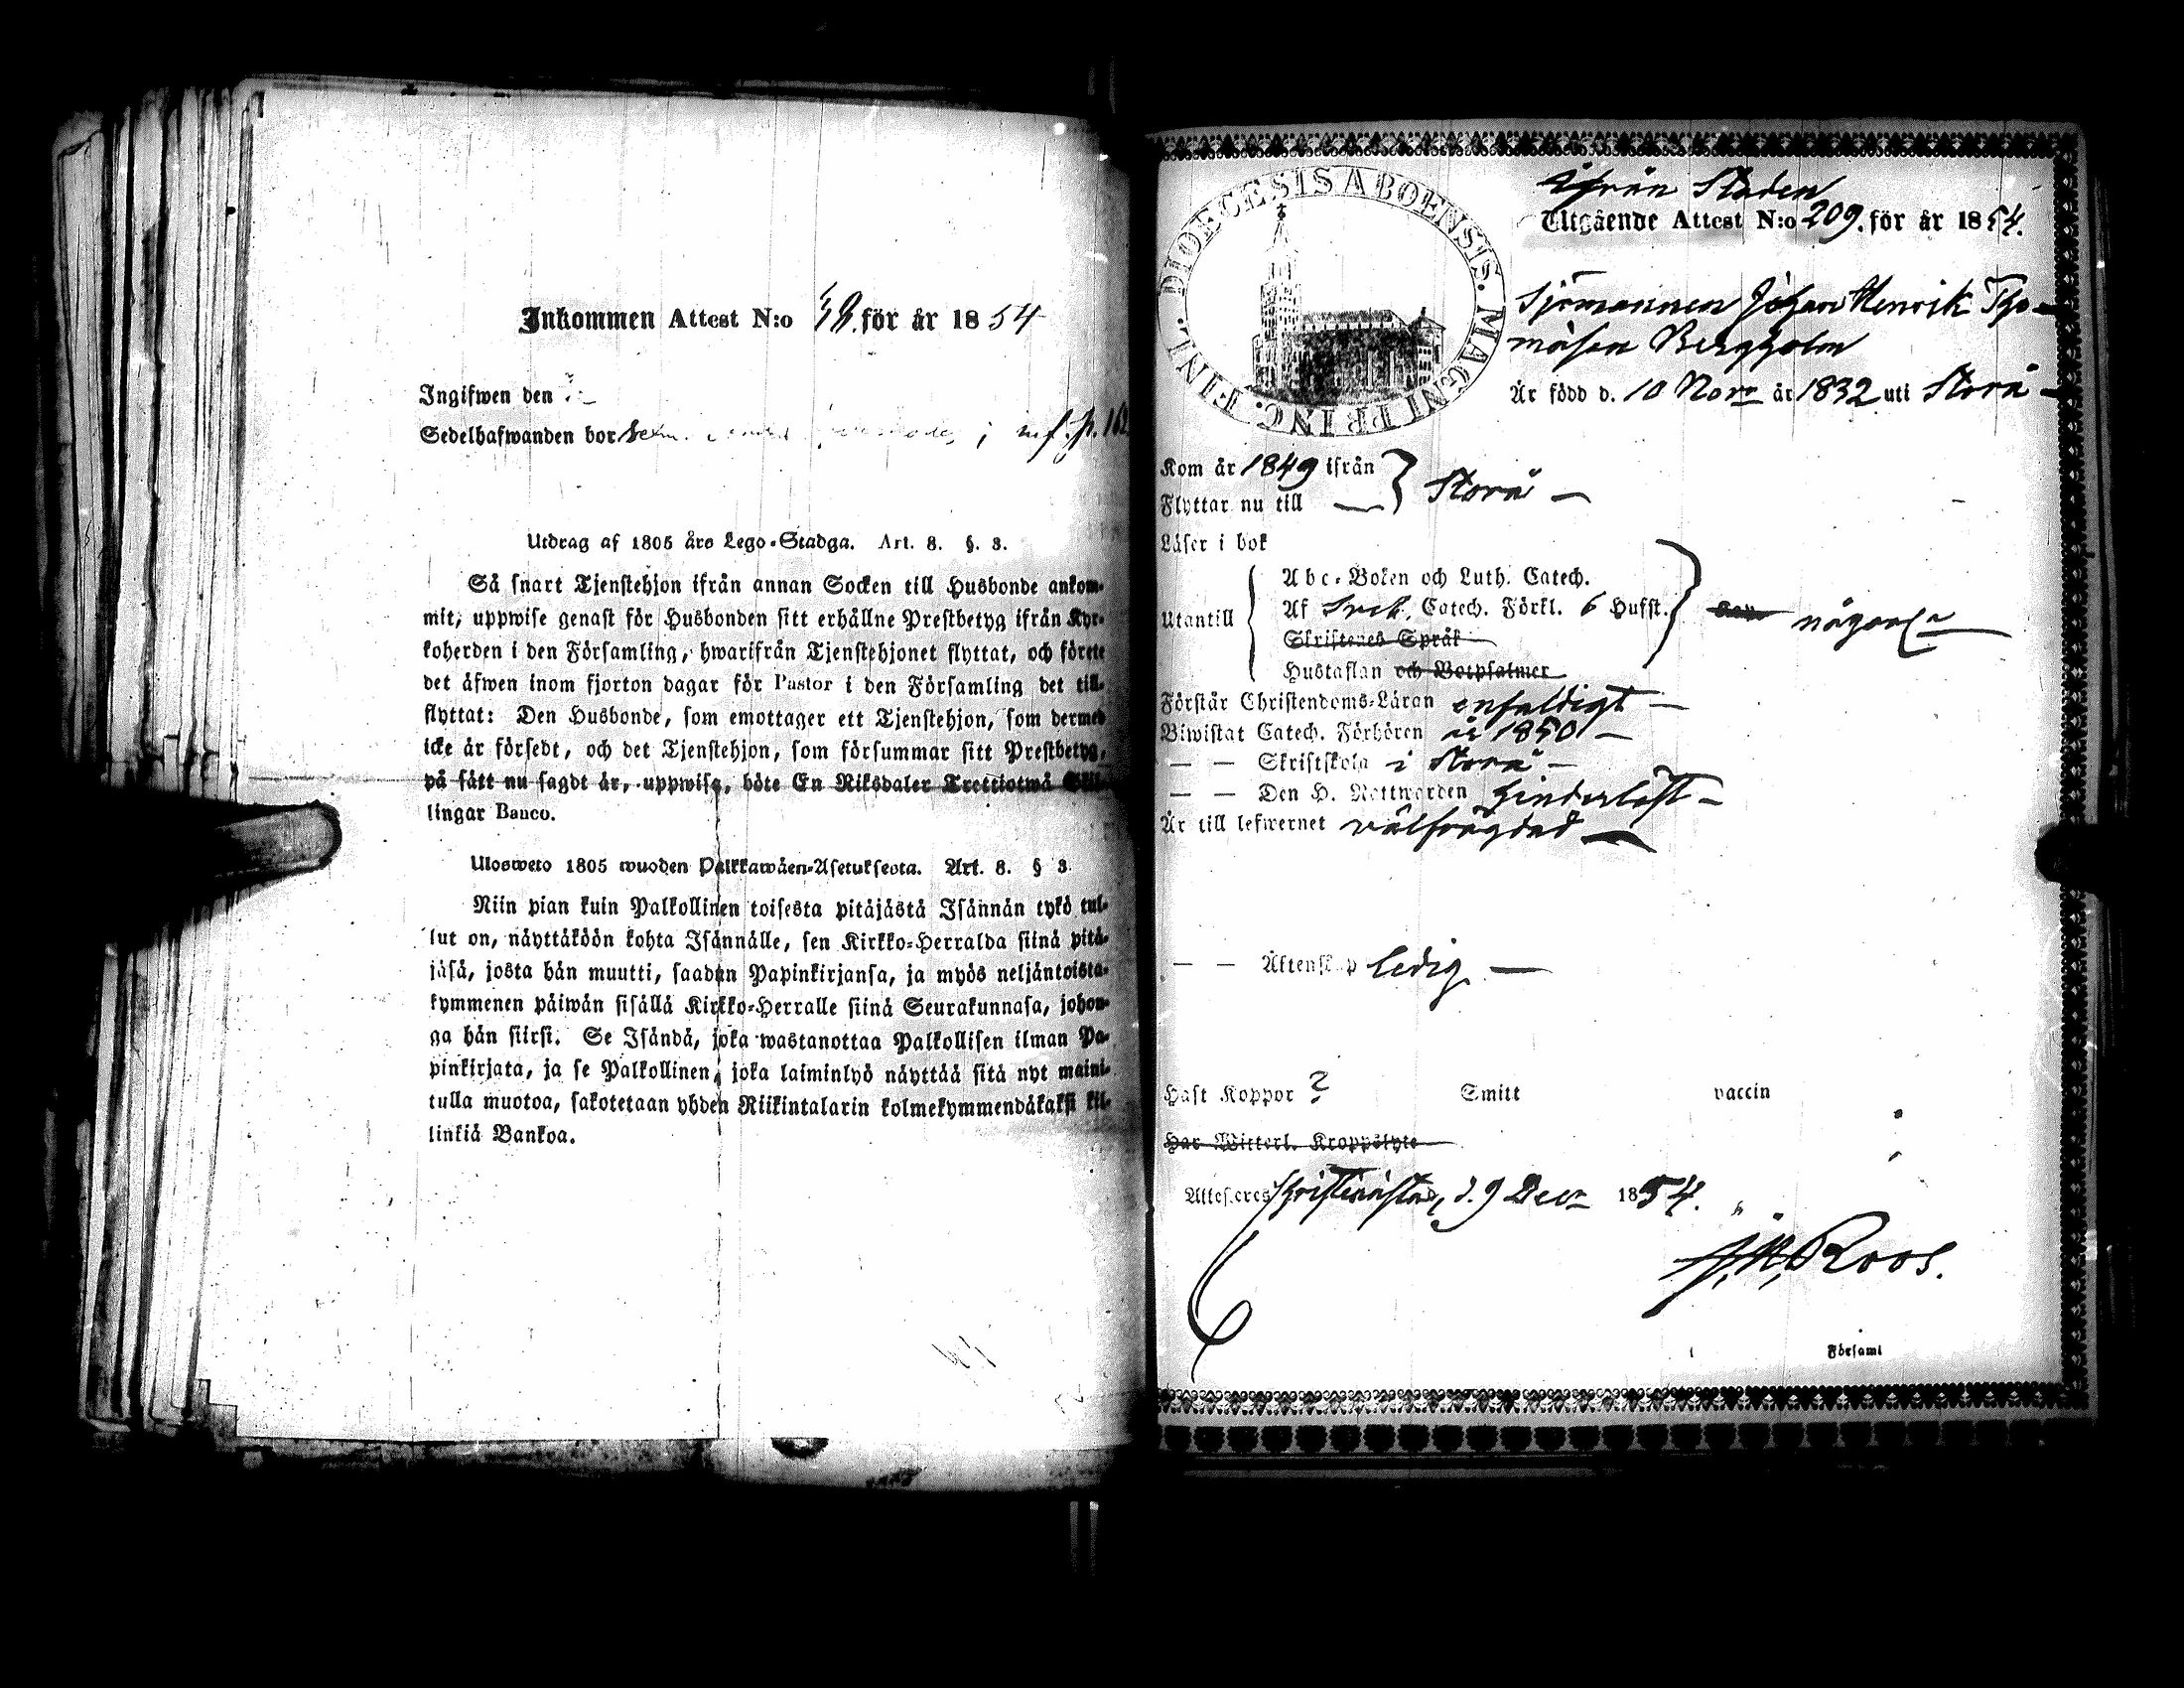 Inkommen Attest N:o för år 1854
Ingifwen den
Sedelhafwanden bor i inf. p. 162
Utdrag af 1805 års Lego-Stadga. Art. 8. §. 3.
Så snart Tjenstehjon ifrån annan Socken till Husbonde ankom-
mit, uppwise genast för Husbonden sitt erhållne Prestbetyg ifrån Kyr-
koherden i den Församling, hwarifrån Tjenstehjonet flyttat, och förete
det äfwen inom fjorton dagar för Pastor i den Församling det till-
flyttat: Den Husbonde, som emottager ett Tjenstehjon, som dermed
icke är försedt, och det Tjenstehjon, som försummar sitt Prestbetyg,
på sätt nu sagdt är, uppwisa, böte En Riksdaler Trettiotwå Skil-
lingar Banco.
Ulosweto 1805 wuoden Palkkawäen-Asetuksesta. Art. 8. § 3
Niin pian kuin Palkollinen toisesta pitäjästä Isännän tykö tul-
lut on, näyttäköön kohta Isännälle, sen Kirkko-Herralda siinä pitä-
jäsä, josta hän muutti, saadun Papinkirjansa, ja myös neljäntoista-
kymmenen päiwän sisällä Kirkko-Herralle siinä Seurakunnasa, johon-
ga hän siirsi. Se Isändä, joka wastanottaa Palkollisen ilman Pa-
pinkirjata, ja se Palkollinen, joka laiminlyö näyttää sitä nyt maini-
tulla muotoa, sakotetaan yhden Riikintalarin kolmekymmendäkaksi kil-
linkiä Bankoa.
DIOECESIS ABOENSIS. MAGNI PRINC. FINL.
ifrån Staden
Utgående Attest N:o 209. för år 1854.
Sjömannen Johan Henrik Tho-
mäson Bergholm
Är född d. 10 Novr år 1832 uti Storå
Kom år 1849 ifrån
Flyttar nu till
} Storå
Läser i bok
Utantill
Abc-Boken och Luth. Catech.
Af Sveb. Catech. Förkl. 6 Hufst.
Skriftenes Språk
Hustaflan och Botpsalmer
någorl.
Förstår Christendoms-Läran enfaldigt
Biwistat Catech. Förhören år 1850
— — Skriftskola i Storå
— — Den H. Nattwarden hinderlöst
Är till lefwernet välfrägdad
— — Äktenskap ledig
Haft Koppor ? Smitt vaccin
Har Witterl. Kroppslyte
Attesteres Christinestad, d. 9 Decr 1854.
J. H. Roos.
Församl